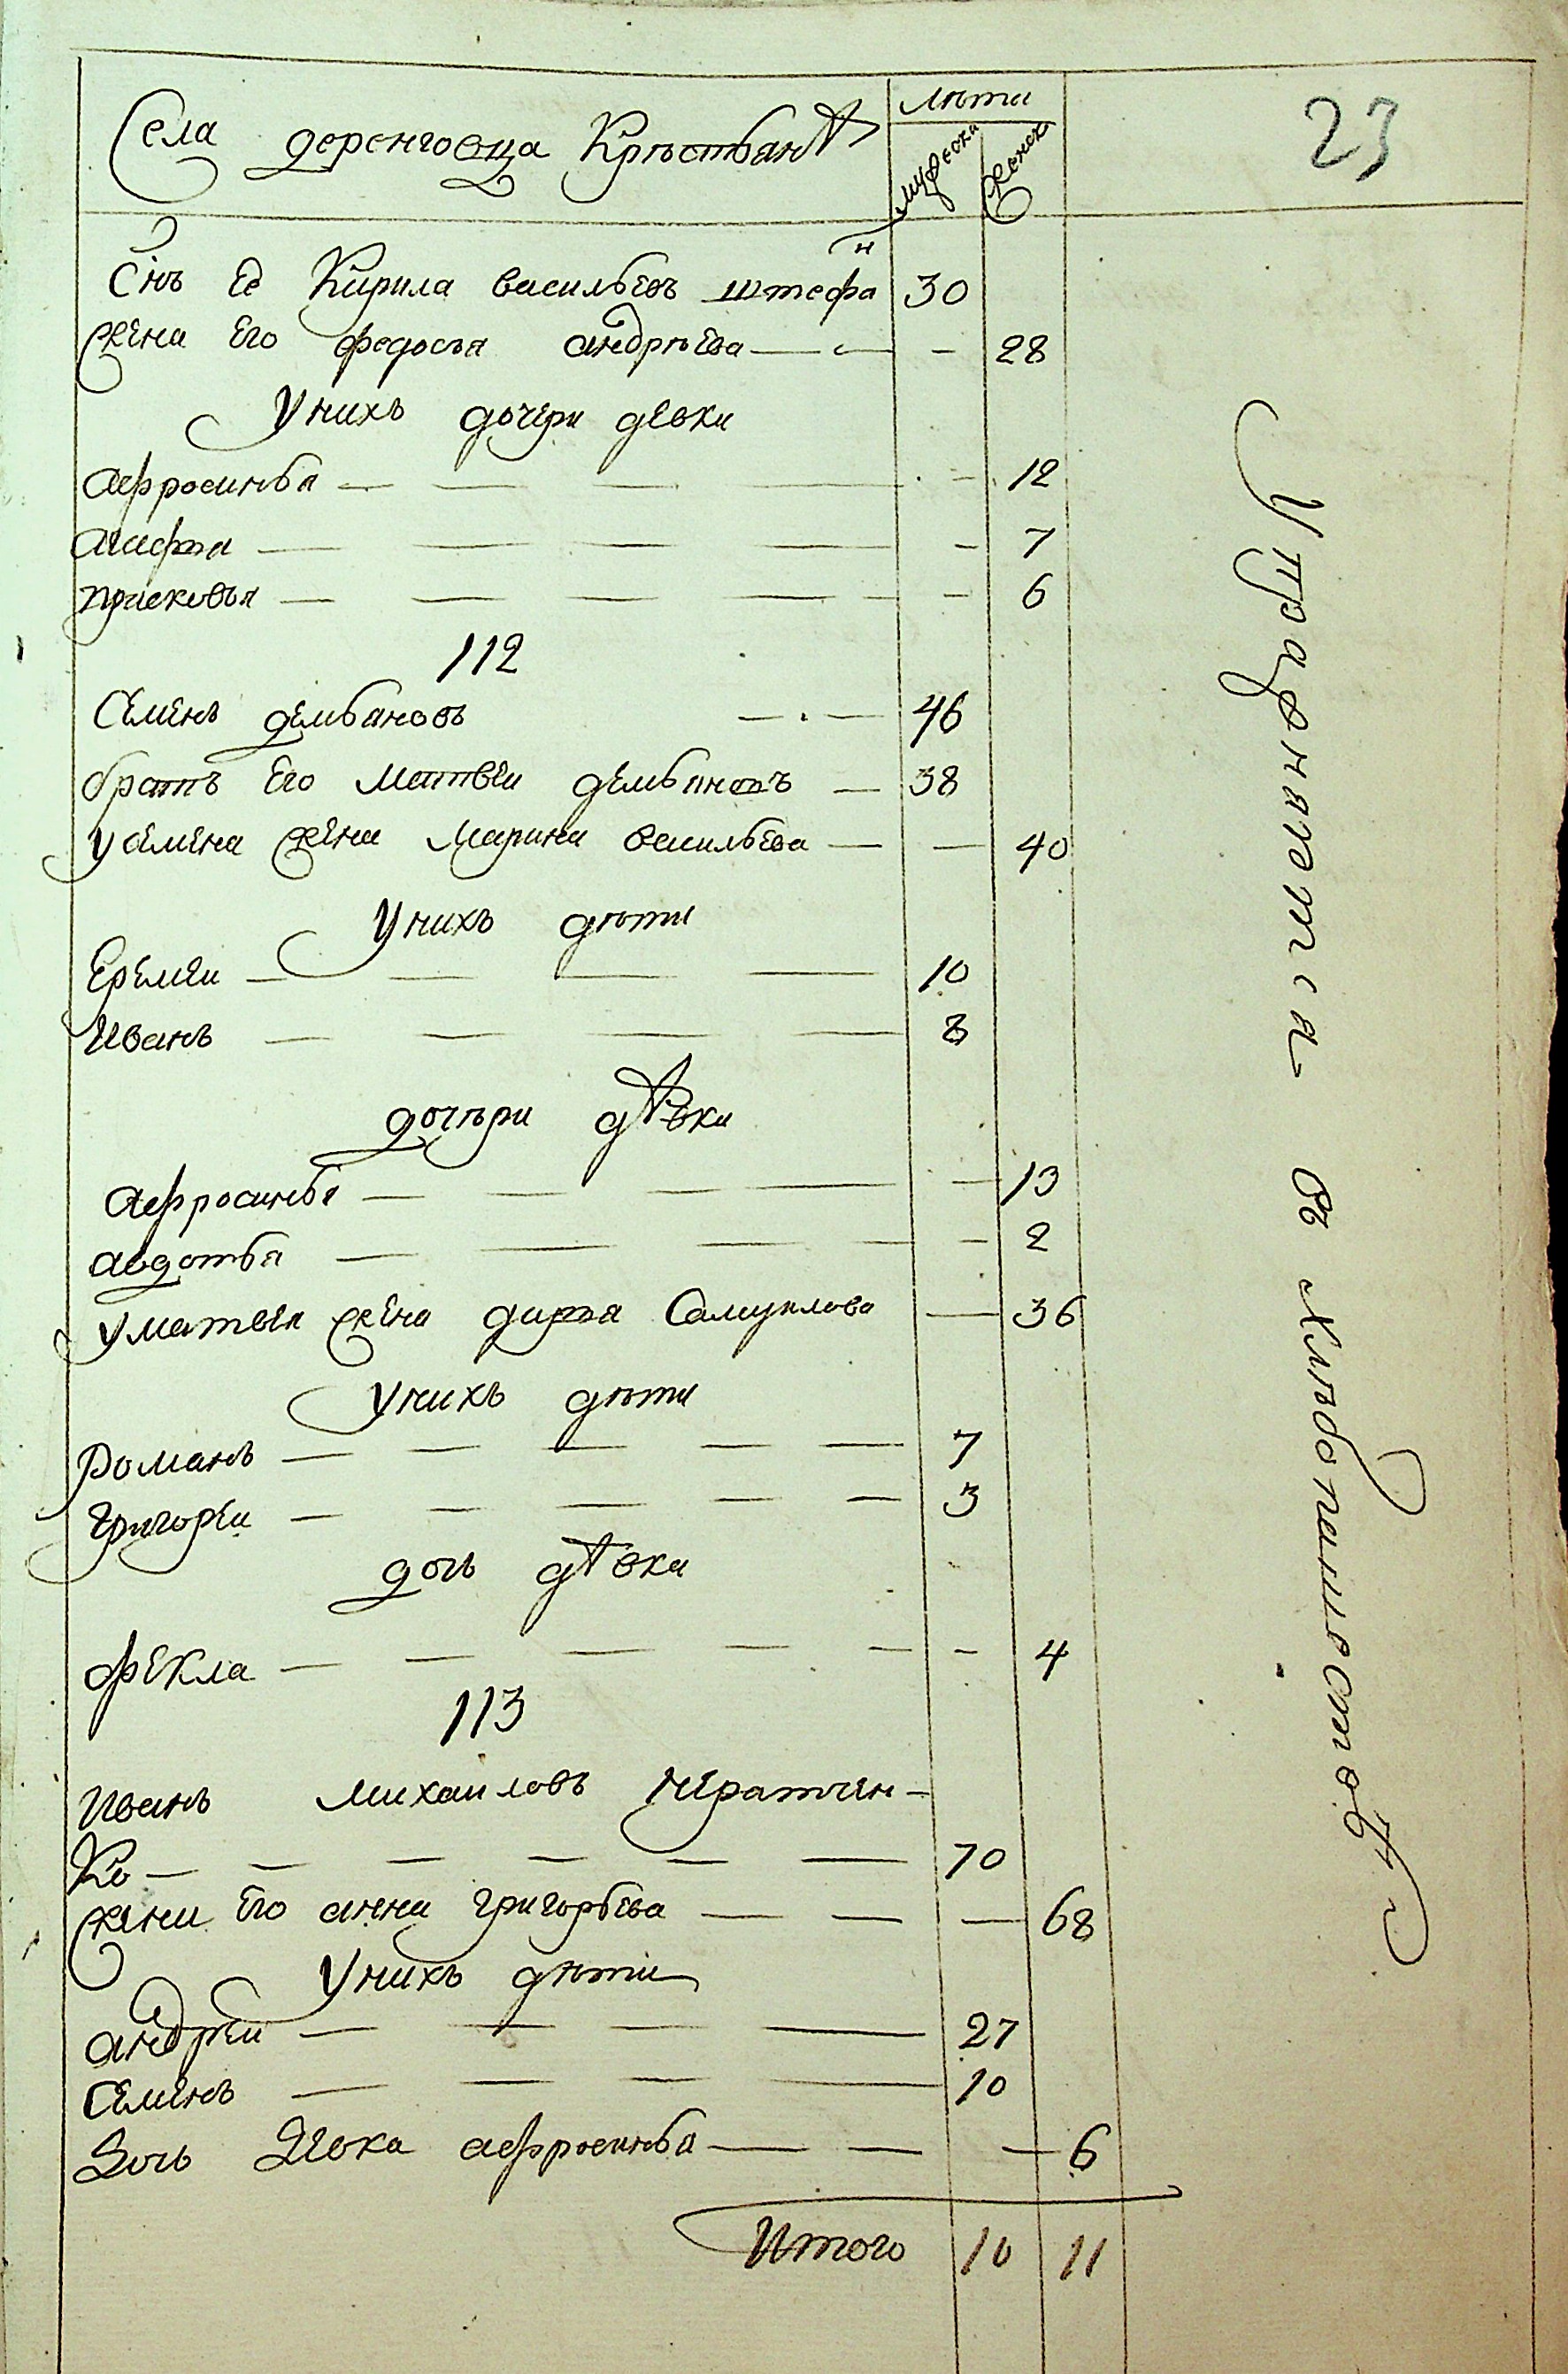 лѣта
23
Села деренговца Крѣстьанѣ
мужеска
женска
Снъ Ее Кирила васильевъ штефан 30
жена Его федосья андрѣева — - 28
У нихъ дочери девки
аефросинья — 12
агафья — 7
прасковья — 6
112
Семенъ демьановъ — 46
братъ Его матвеи демьяновъ — 38
у семена жена марина васильева — 40
У нихъ дѣти
Еремеи — 10
Иванъ — 8
дочѣри дѣвки
аефросинья — 13
авдотья — 2
у матвея жена дарья Самуилова — 36
У нихъ дѣти
Романъ — 7
григореи — 3
дочь дѣвка
фекла — 4
113
Иванъ михаиловъ чератчен-
Ко — 70
жена Его анна григорьева — 68
У нихъ дѣти
андреи — 27
Семенъ — 10
Дочь Девка аефросинья — 6
Итого 10 11
Упражняется въ хлѣбопашествѣ